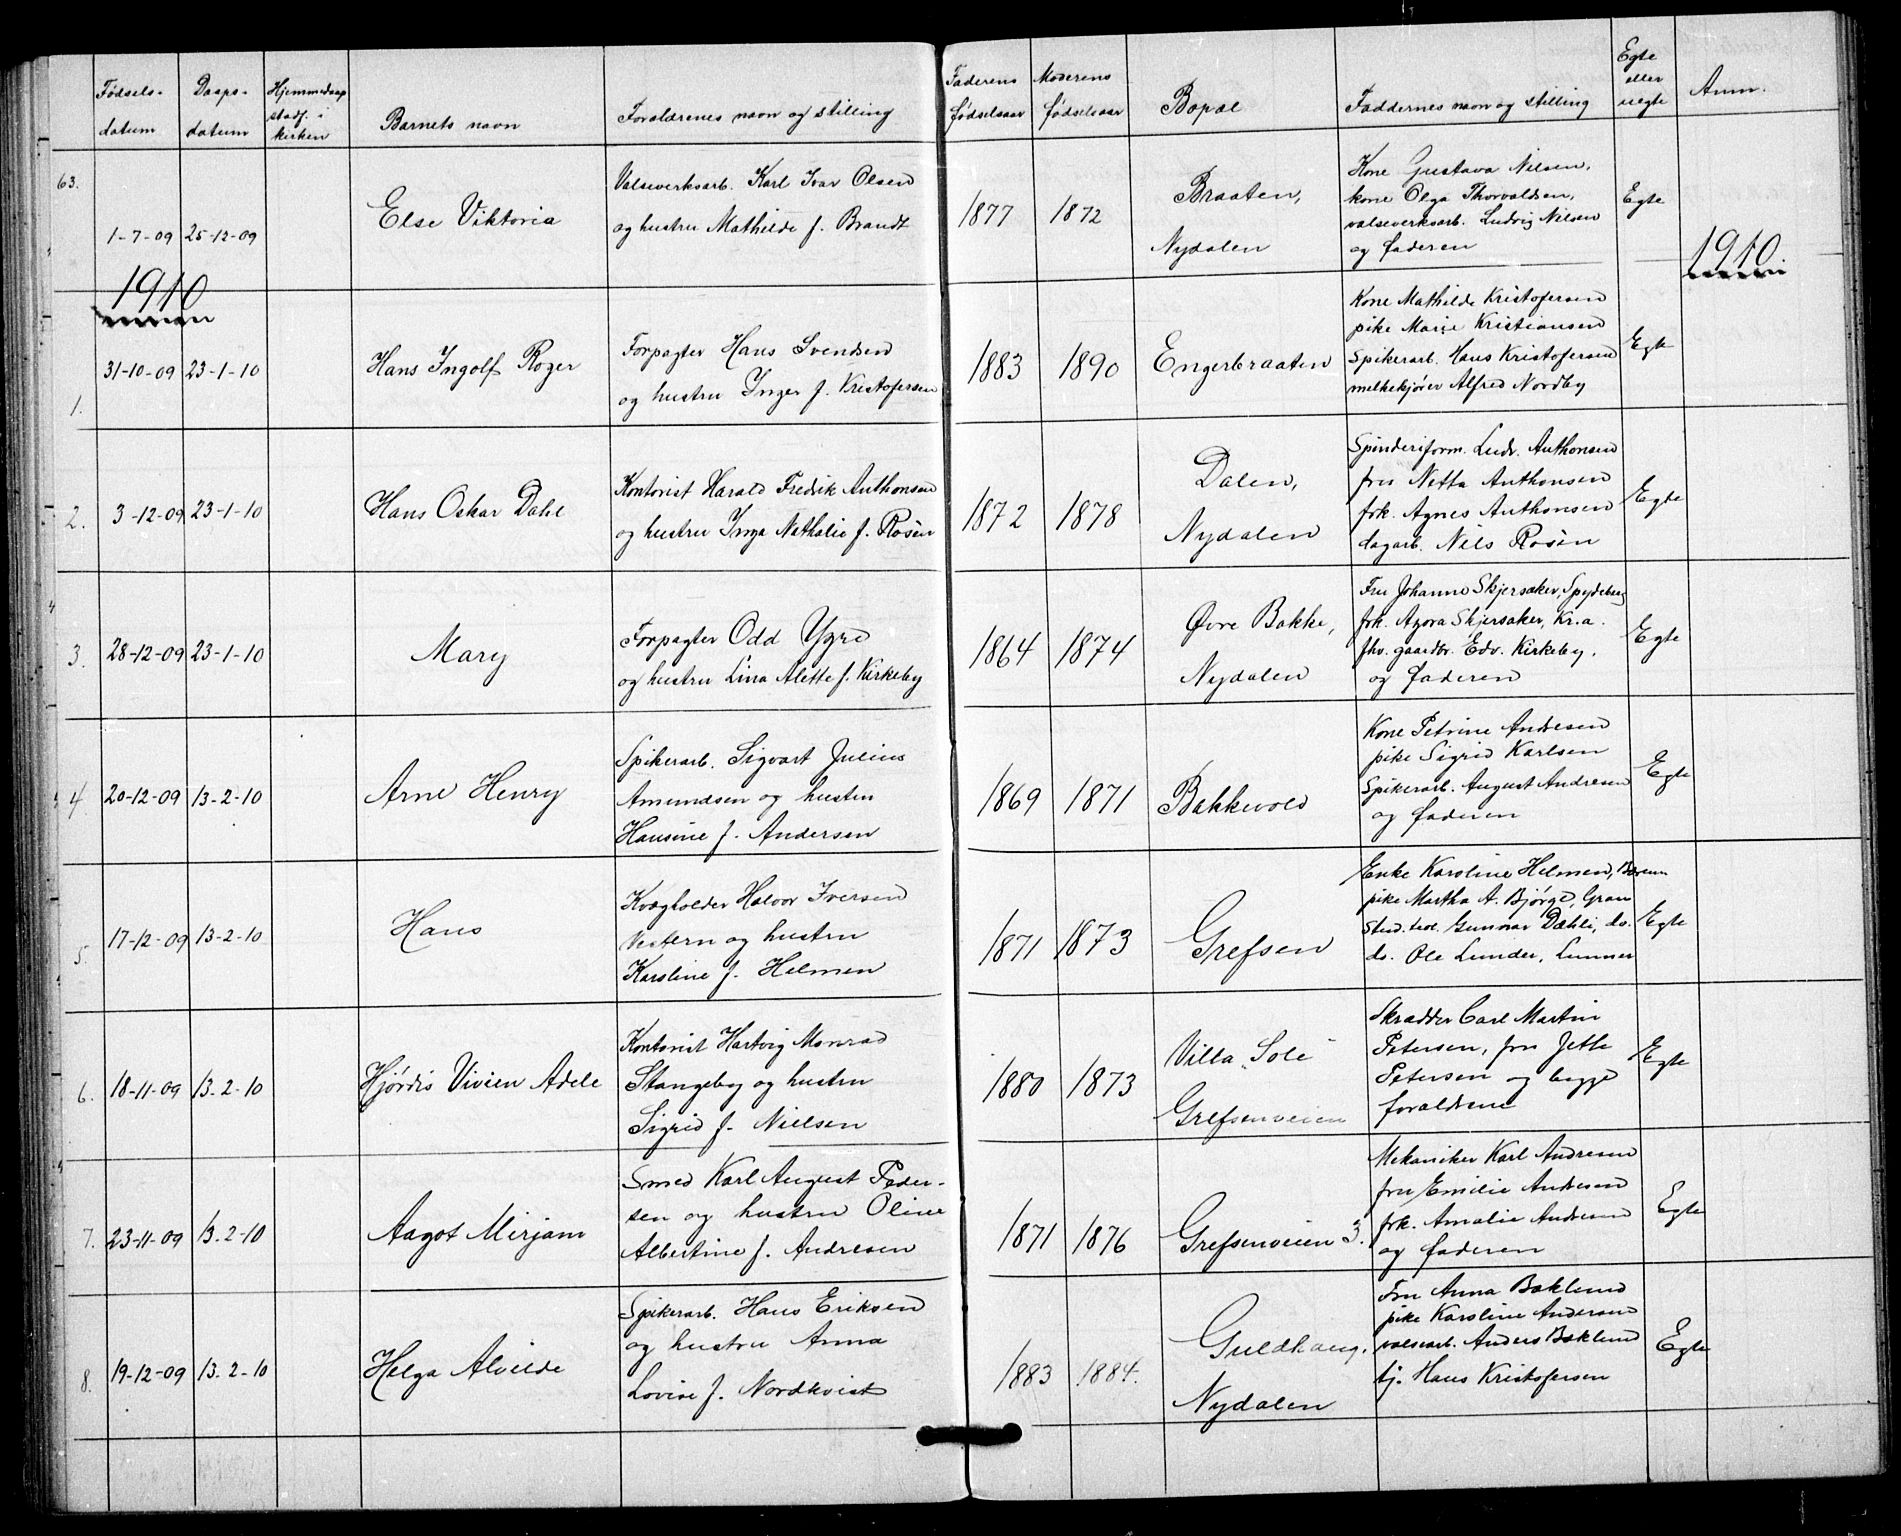 Fødsels-
datum
Daaps-
datum
Hjemmedaap
stadf. i
kirken
Barnets navn
Forældrenes navn og stilling
Faderens
fødselsaar
Moderens
fødselsaar
Bopæl
Faddernes navn og stilling
Egte
eller
uegte
Anm.
63.
1-7-09 25-12-09
Else Viktoria
Valseverksarb. Karl Ivar Olsen
og hustru Mathilde f. Brandt
1877 1872
Braaten,
Nydalen
Kone Gustava Nilsen,
kone Olga Thorvaldsen,
valseverksarb. Ludvig Nilsen
og faderen
Egte
1910
1910
1.
31-10-09 23-1-10
Hans Ingolf Roger
Forpagter Hans Svendsen
og hustru Inger f. Kristofersen
1883 1890
Engerbraaten
Kone Mathilde Kristofersen
pike Marie Kristiansen
Spikerarb. Hans Kristofersen
melkekjører Alfred Nordby
Egte
2.
3-12-09 23-1-10
Hans Oskar Dahl
Kontorist Harald Fredrik Anthonsen
og hustru Inga Nathalie f. Rosèn
1872 1878
Dalen,
Nydalen
Spinderiform. Ludv. Anthonsen
fru Netta Anthonsen
frk. Agnes Anthonsen
dagarb. Nils Rosèn
Egte
3.
28-12-09 23-1-10
Mary
Forpagter Odd Ygre
og hustru Lina Alette f. Kirkeby
1864 1874
Øvre Bakke,
Nydalen
Fru Johanne Skjersaker, Spydeberg
frk. Agora Skjersaker, Kr.a.
fhv. gaardbr. Edv. Kirkeby.
og faderen
Egte
4.
20-12-09 13-2-10
Arne Henry
Spikerarb. Sigvart Julius
Amundsen og hustru
Hansine f. Andersen
1869 1871
Bakkevold
Kone Petrine Andresen
pike Sigrid Karlsen
Spikerarb. August Andresen
og faderen
Egte
5.
17-12-09 13-2-10
Hans
Kvægholder Halvor Iversen
Vestern og hustru
Karoline f. Helmen
1871 1873
Grefsen
Enke Karoline Helmen, Bærum
pike Martha A. Bjørge, Gran
Stud. teol. Gunnar Dæhli, do.
do. Ole Lunder, Lunner
Egte
6.
18-11-09 13-2-10
Hjørdis Vivien Adele
Kontorist Hartvig Monrad
Stangeby og hustru
Sigrid f. Nielsen
1880 1873
Villa "Sole"
Grefsenveien
Skrædder Carl Martin
Petersen, fru Jette
Petersen og begge
forældrene
Egte
7.
23-11-09 13-2-10
Aagot Mirjam
Smed Karl August Peder-
sen og hustru Oline
Albertine f. Andresen
1871 1876
Grefsenveien 3.
Mekaniker Karl Andresen
fru Emilie Andresen
frk. Amalie Andresen
og faderen
Egte
8.
19-12-09 13-2-10
Helga Alvilde
Spikerarb. Hans Eriksen
og hustru Anna
Lovise f. Nordkvist
1883 1884.
Guldhaug,
Nydalen
Fru Anna Baklund
pike Karoline Andersen
valsearb. Anders Baklund
tj. Hans Kristofersen
Egte